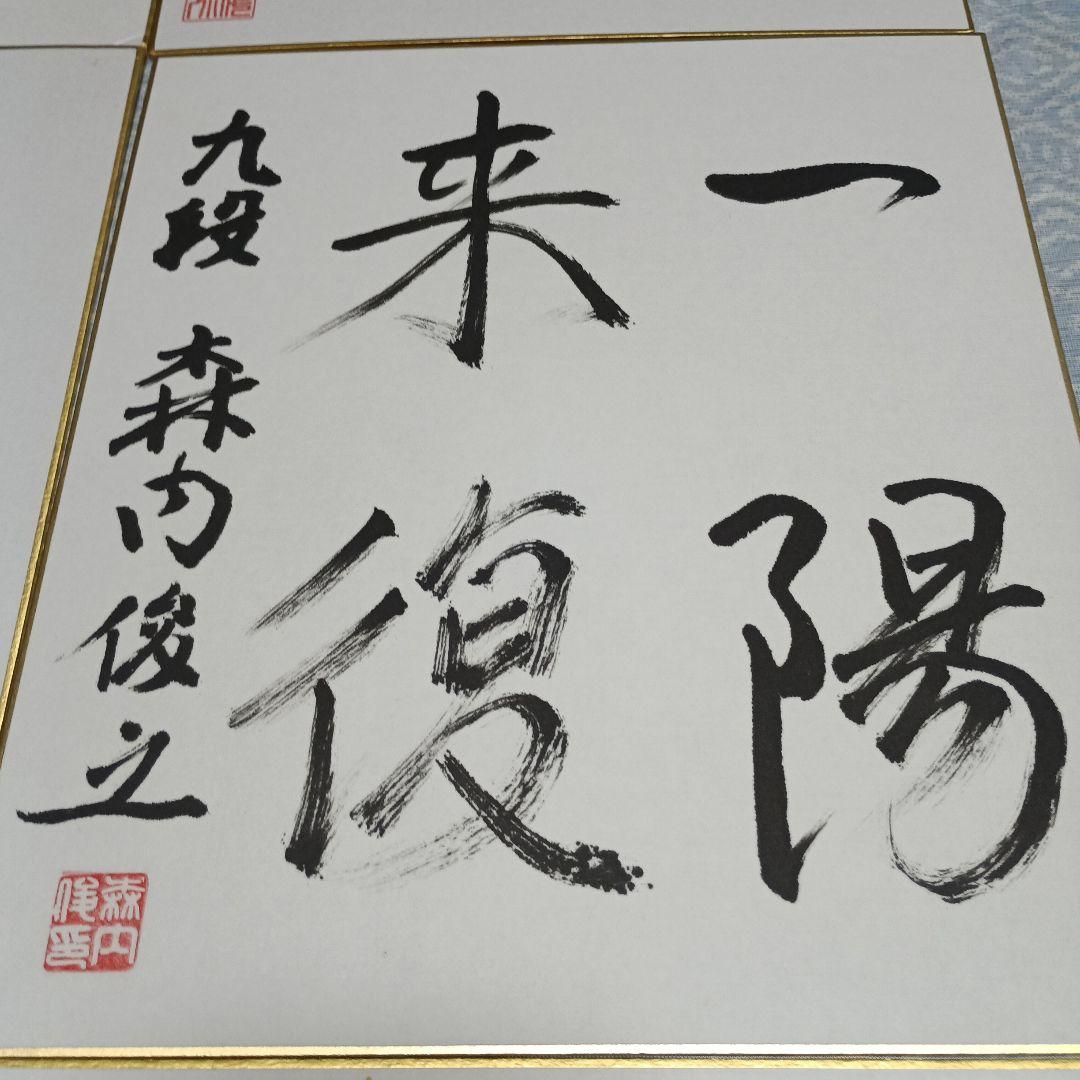 一陽
来復
九段 森内俊之
森内
俊印